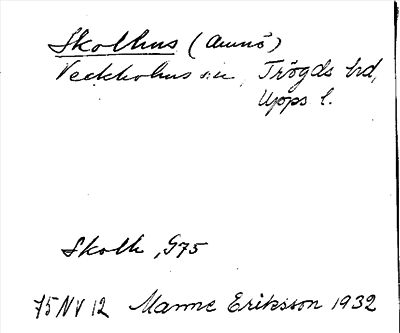 Skolhus (Arnö)
Veckholms sn, Trögds hd,
Upps l.
Skolh, G75
75 NV 12 Manne Eriksson 1932